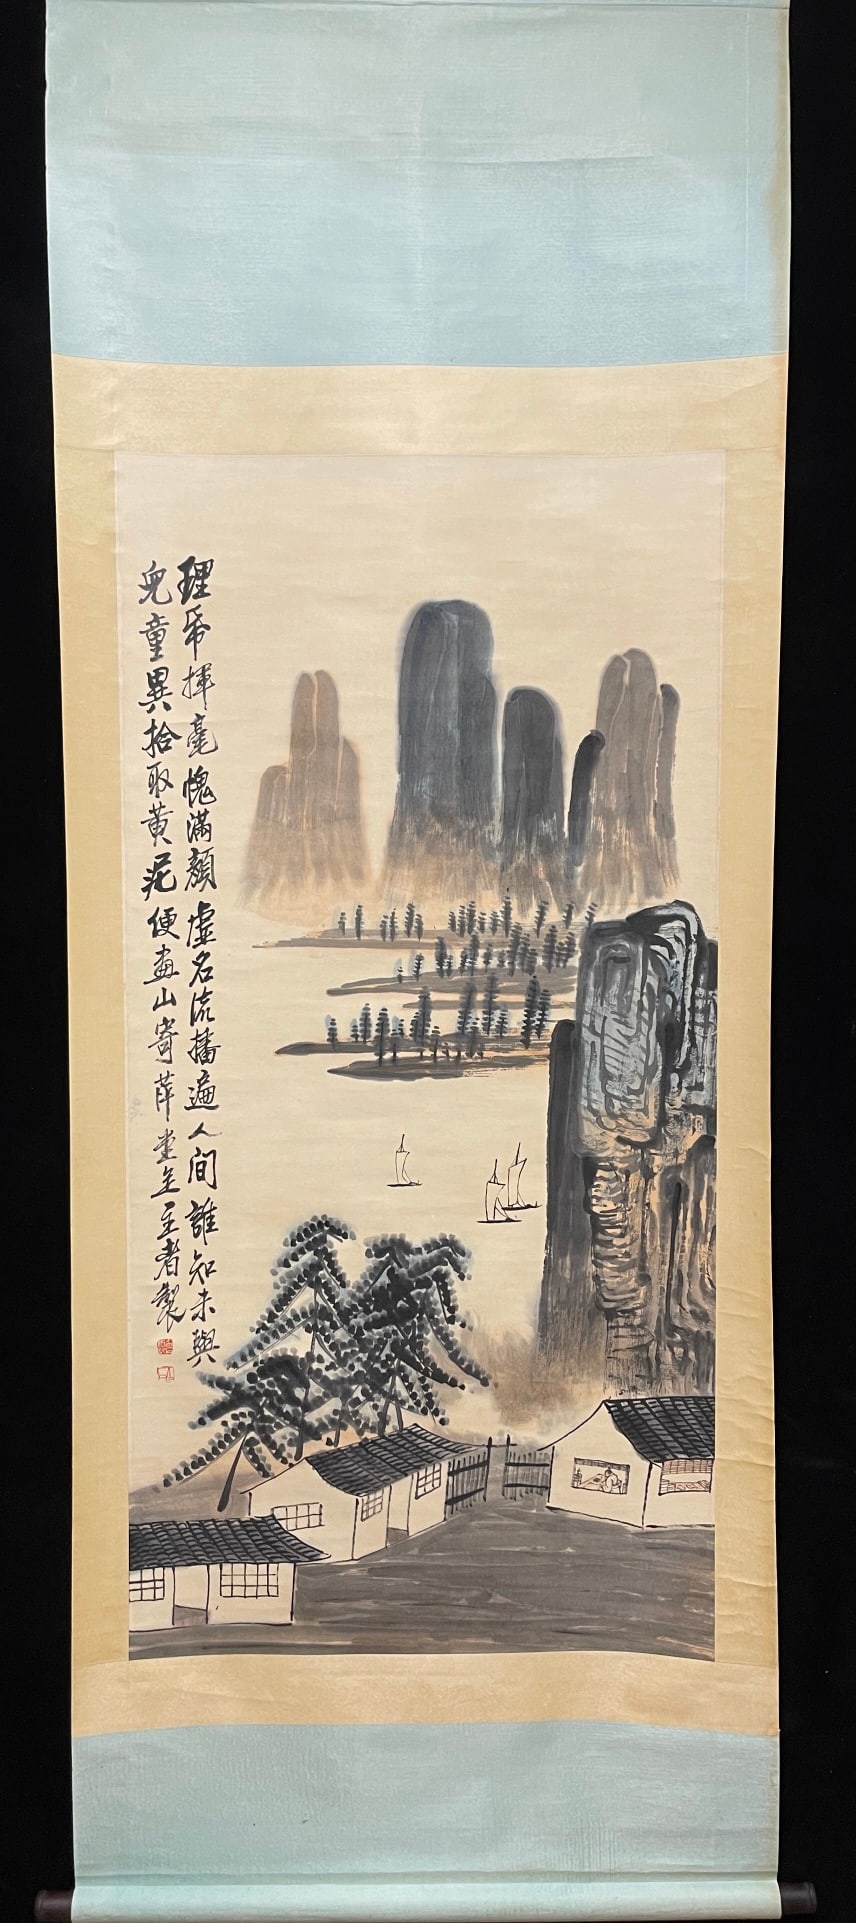 理𢁉揮毫愧滿顏虛名流播遍人間誰知未與
兒童異拾取黃泥便畫山寄萍堂主王者製